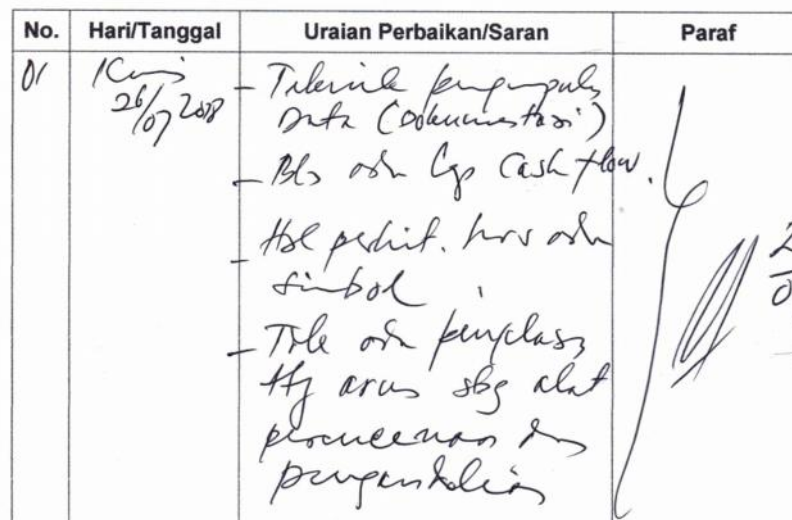 No. Hari/Tanggal Uraian Perbaikan/Saran Paraf
01 Kamis - Teknik pengumpuls
26/07 2018 Data (Dokumentasi)
- Bls ada Lap Cash flow.
- Hsl perhit. hrs ada
simbol
- Tdk ada penjelasan
ttg arus sbg alat
perencanaan dan
pengendalian